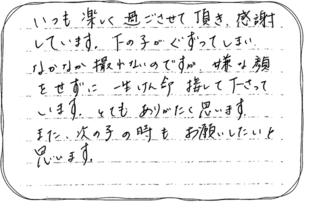 いつも楽しく過ごさせて頂き、感謝
しています。下の子がぐずってしまい
なかなか撮れないのですが 嫌な顔
をせずに 一生けん命 接して下さって
います。とても ありがたく思います
また、次の子の時も お願いしたいと
思います。